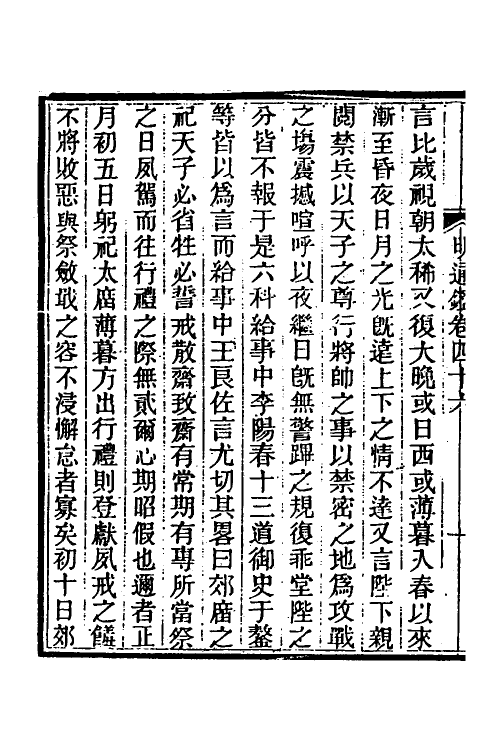 明通鑑卷四十六
一
言比歲視朝太稀又復大晩或日西或薄暮入春以來
漸至昏夜日月之光旣遠上下之情不達又言陛下親
閱禁兵以天子之尊行將帥之事以禁密之地爲攻戰
之塲震撼喧呼以夜繼日旣無警蹕之規復乖堂陛之
分皆不報于是六科給事中李陽春十三道御史于鏊
等皆以爲言而給事中王良佐言尤切其畧曰郊廟之
祀天子必省牲必誓戒散齋致齋有常期有專所當祭
之日夙駕而往行禮之際無貳爾心期昭假也邇者正
月初五日躬祀太廟薄暮方出行禮則登獻夙戒之饎
不將敗惡與祭斂戢之容不浸懈怠者寡矣初十日郊